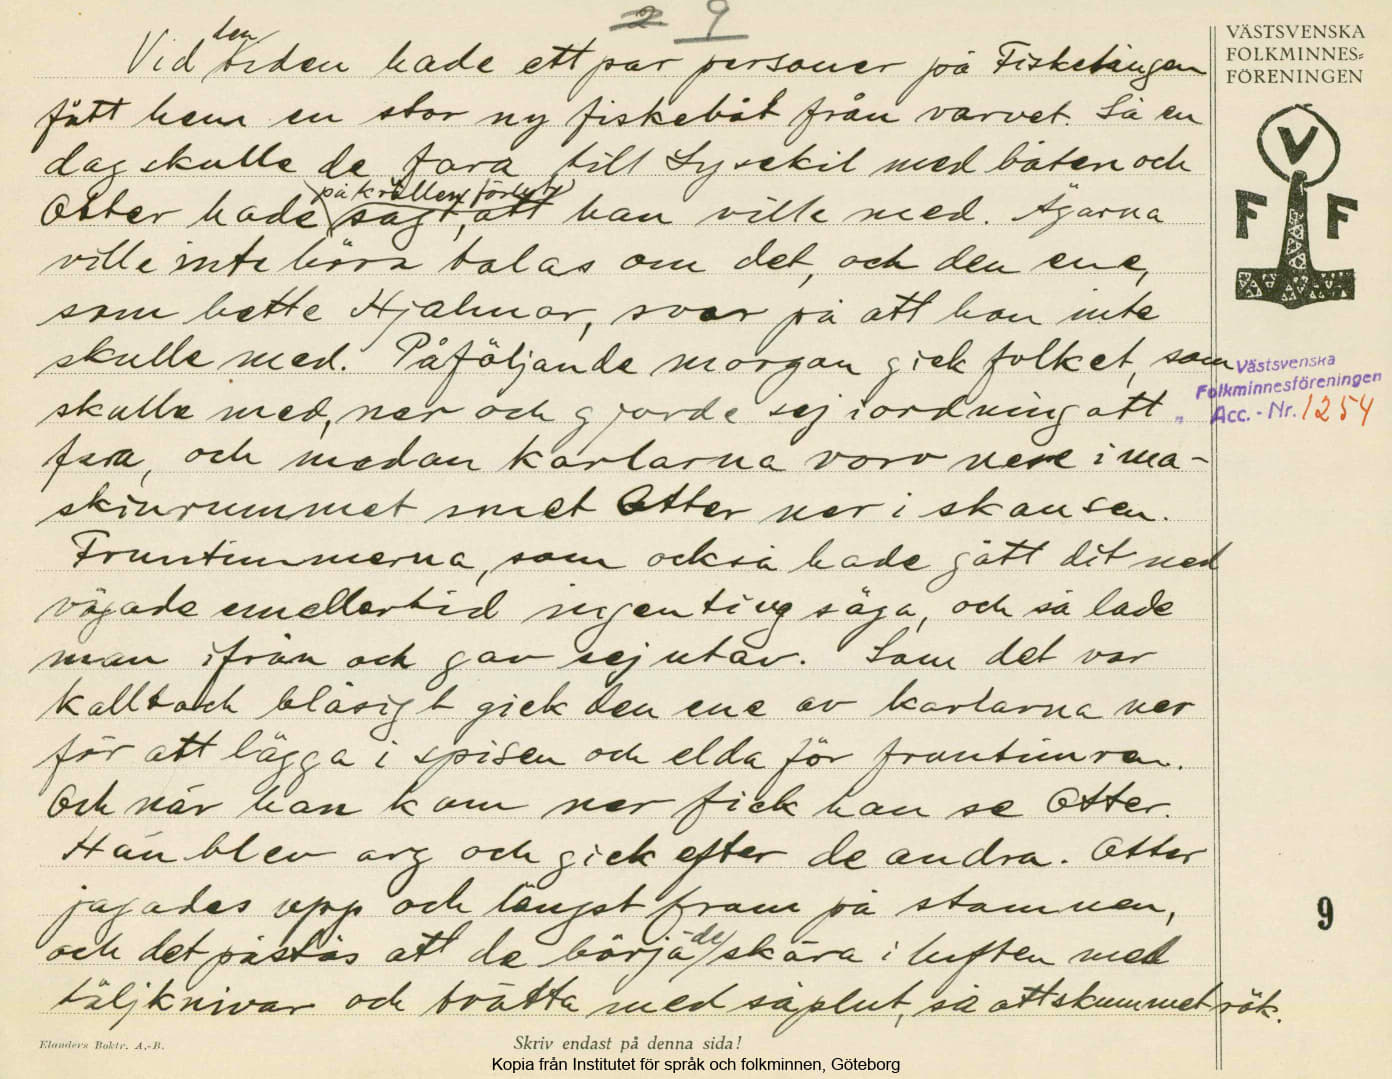 2 9
VÄSTSVENSKA
FOLKMINNES=
FÖRENINGEN
den
Vid tiden hade ett par personer på Fisketången
fått hem en stor ny fiskebåt från varvet. Så en
dag skulle de fara till Lysekil med båten och
på kvällen förut
Otter hade sagt, att han ville med. Ägarna
ville inte höra talas om det, och den ene,
som hette Hjalmar, svor på att han inte
skulle med. Påföljande morgon gick folket, som
skulle med, ner och gjorde sej iordning att
fara, och medan karlarna voro nere i ma-
skinrummet smet Otter ner i skansen.
Fruntimmerna, som också hade gått dit ned
vågade emellertid ingenting säga, och så lade
man ifrån och gav sej utav. Som det var
kallt och blåsigt gick den ene av karlarna ner
för att lägga i spisen och elda för fruntimren.
Och när han kom ner fick han se Otter.
Han blev arg och gick efter de andra. Otter
jagades upp och längst fram på stammen,
och det påstås att de började skära i luften med
täljknivar och tvätta med såplut, så att skummet rök.
V
F F
Västsvenska
Folkminnesföreningen
Acc. - Nr. 1254
9
Elanders Boktr. A.-B.
Skriv endast på denna sida!
Kopia från Institutet för språk och folkminnen, Göteborg